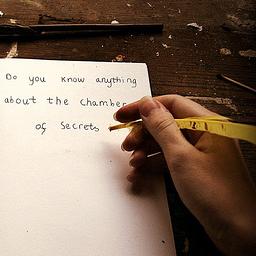 Do you know anything
about the Chamber
of Secrets